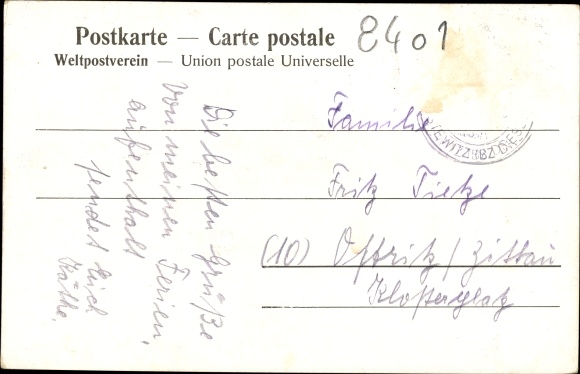 Postkarte — Carte postale
8401
Weltpostverein — Union postale Universelle
Die besten Grüße
von meinen Ferien,
aufenthalt
sendet Euch
Käthe.
Familie
Fritz Tietze
(10) Ostritz / Zittau
Klosterplatz